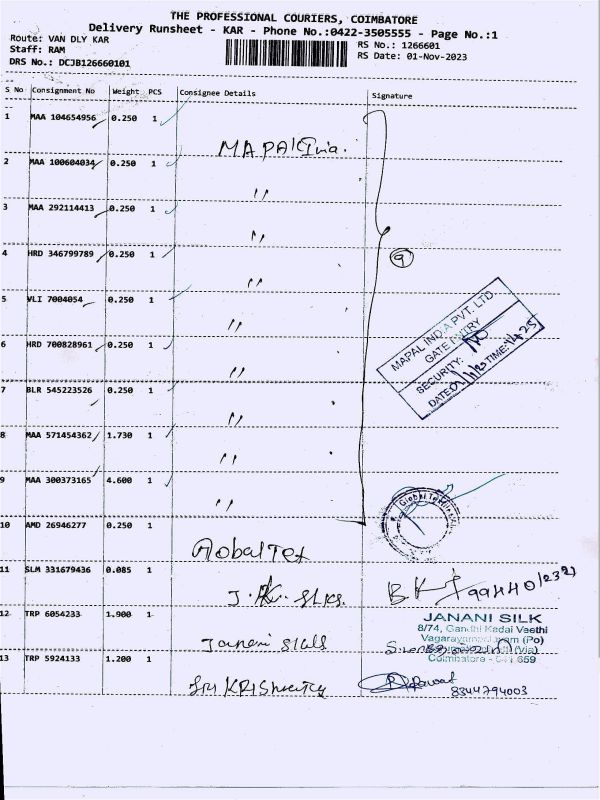 THE PROFESSIONAL COURIERS, COIMBATORE
Delivery Runsheet - KAR - Phone No.:0422-3505555 - Page No.:1
Route: VAN DLY KAR
Staff: RAM
DRS No.: DCJB126660101
RS No.: 1266601
RS Date: 01-Nov-2023
S No Consignment No Weight PCS Consignee Details Signature
1 MAA 104654956 0.250 1
MAPAL India.
2 MAA 100604034 0.250 1
"
3 MAA 292114413 0.250 1
"
4 HRD 346799789 0.250 1
"
9
5 VLI 7004054 0.250 1
"
6 HRD 700828961 0.250 1
"
MAPAL INDIA PVT. LTD
GATE ENTRY
SECURITY:
DATE: TIME: 14:25
7 BLR 545223526 0.250 1
"
8 MAA 571454362 1.730 1
"
9 MAA 300373165 4.600 1
"
10 AMD 26946277 0.250 1
Global Tex
11 SLM 331679436 0.085 1
J.K. silks.
12 TRP 6054233 1.900 1
Janani silks
JANANI SILK
8/74, Gandhi Kadai Veethi
Vagarayampalayam (Po)
(Via)
Coimbatore - 641 659
13 TRP 5924133 1.200 1
Sri KRISHna Tex
8344794003